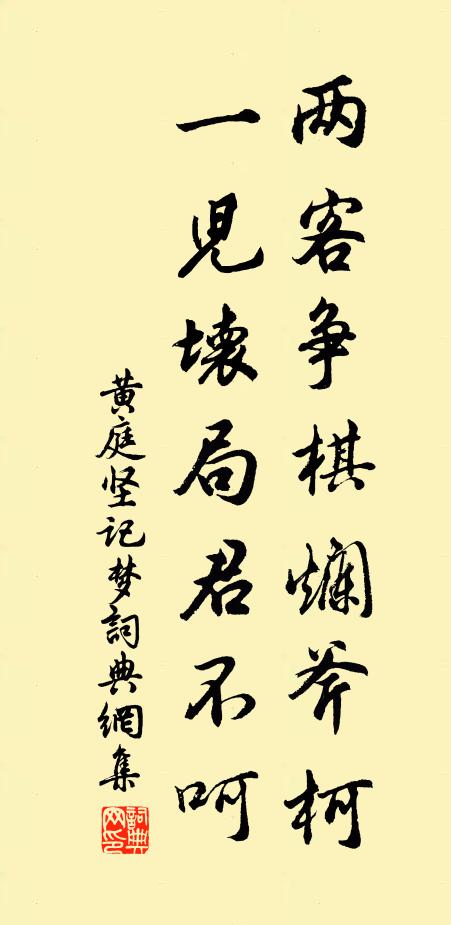 两客争棋烂斧柯
一児壊局君不呵
黄庭坚记梦词典網集
詞典网印